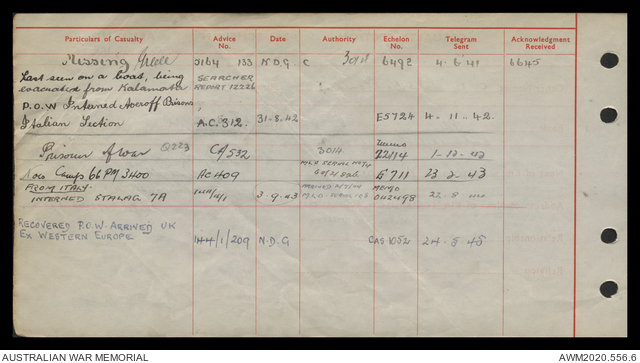 Particulars of Casualty Advice No. Date Authority Echelon No. Telegram Sent Acknowledgment Received
Missing Greece J164 133 N.D.G C 6492 4.6.41 6645
Last seen on a boat, being SEARCHER
evacuated from Kalamata REPORT 12226
P.O.W Interned Averoff Prisons,
Italian Section A.C. 312. 31.8.42 E5724 4.11.42.
Prisoner of War Q223 CA532 3014 22/14 1-12-42
Now Camp 66 PM 3400 AC409 E711 23.2.43
FROM ITALY. MEMO
INTERNED STALAG 7A 3.9.43 042498
RECOVERED P.O.W. ARRIVED UK
EX WESTERN EUROPE 144/1/209 N.D.G CAS1052 24.5.45
AUSTRALIAN WAR MEMORIAL AWM2020.556.6